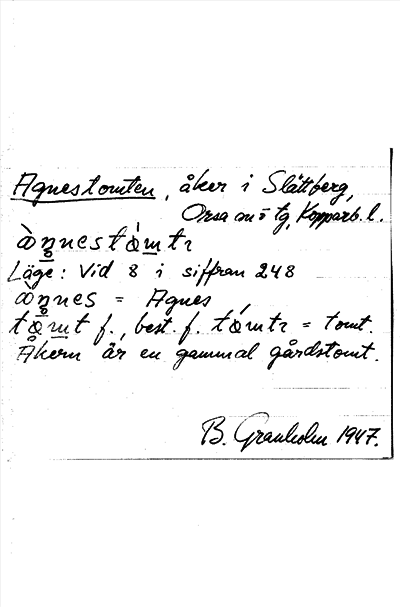 Agnestomten, åker i Slättberg,
Orsa sn ö tg, Kopparb. l.
Läge: Vid 8 i siffran 248
= Agnes
f., best. f. = tomt.
Åkern är en gammal gårdstomt.
B. Granholm 1947.